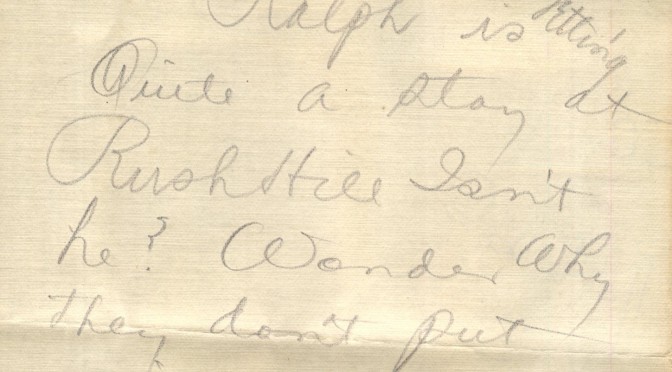 Ralph is getting
Quite a stay at
Rush Hill Isn't
he? Wonder Why
they don't put